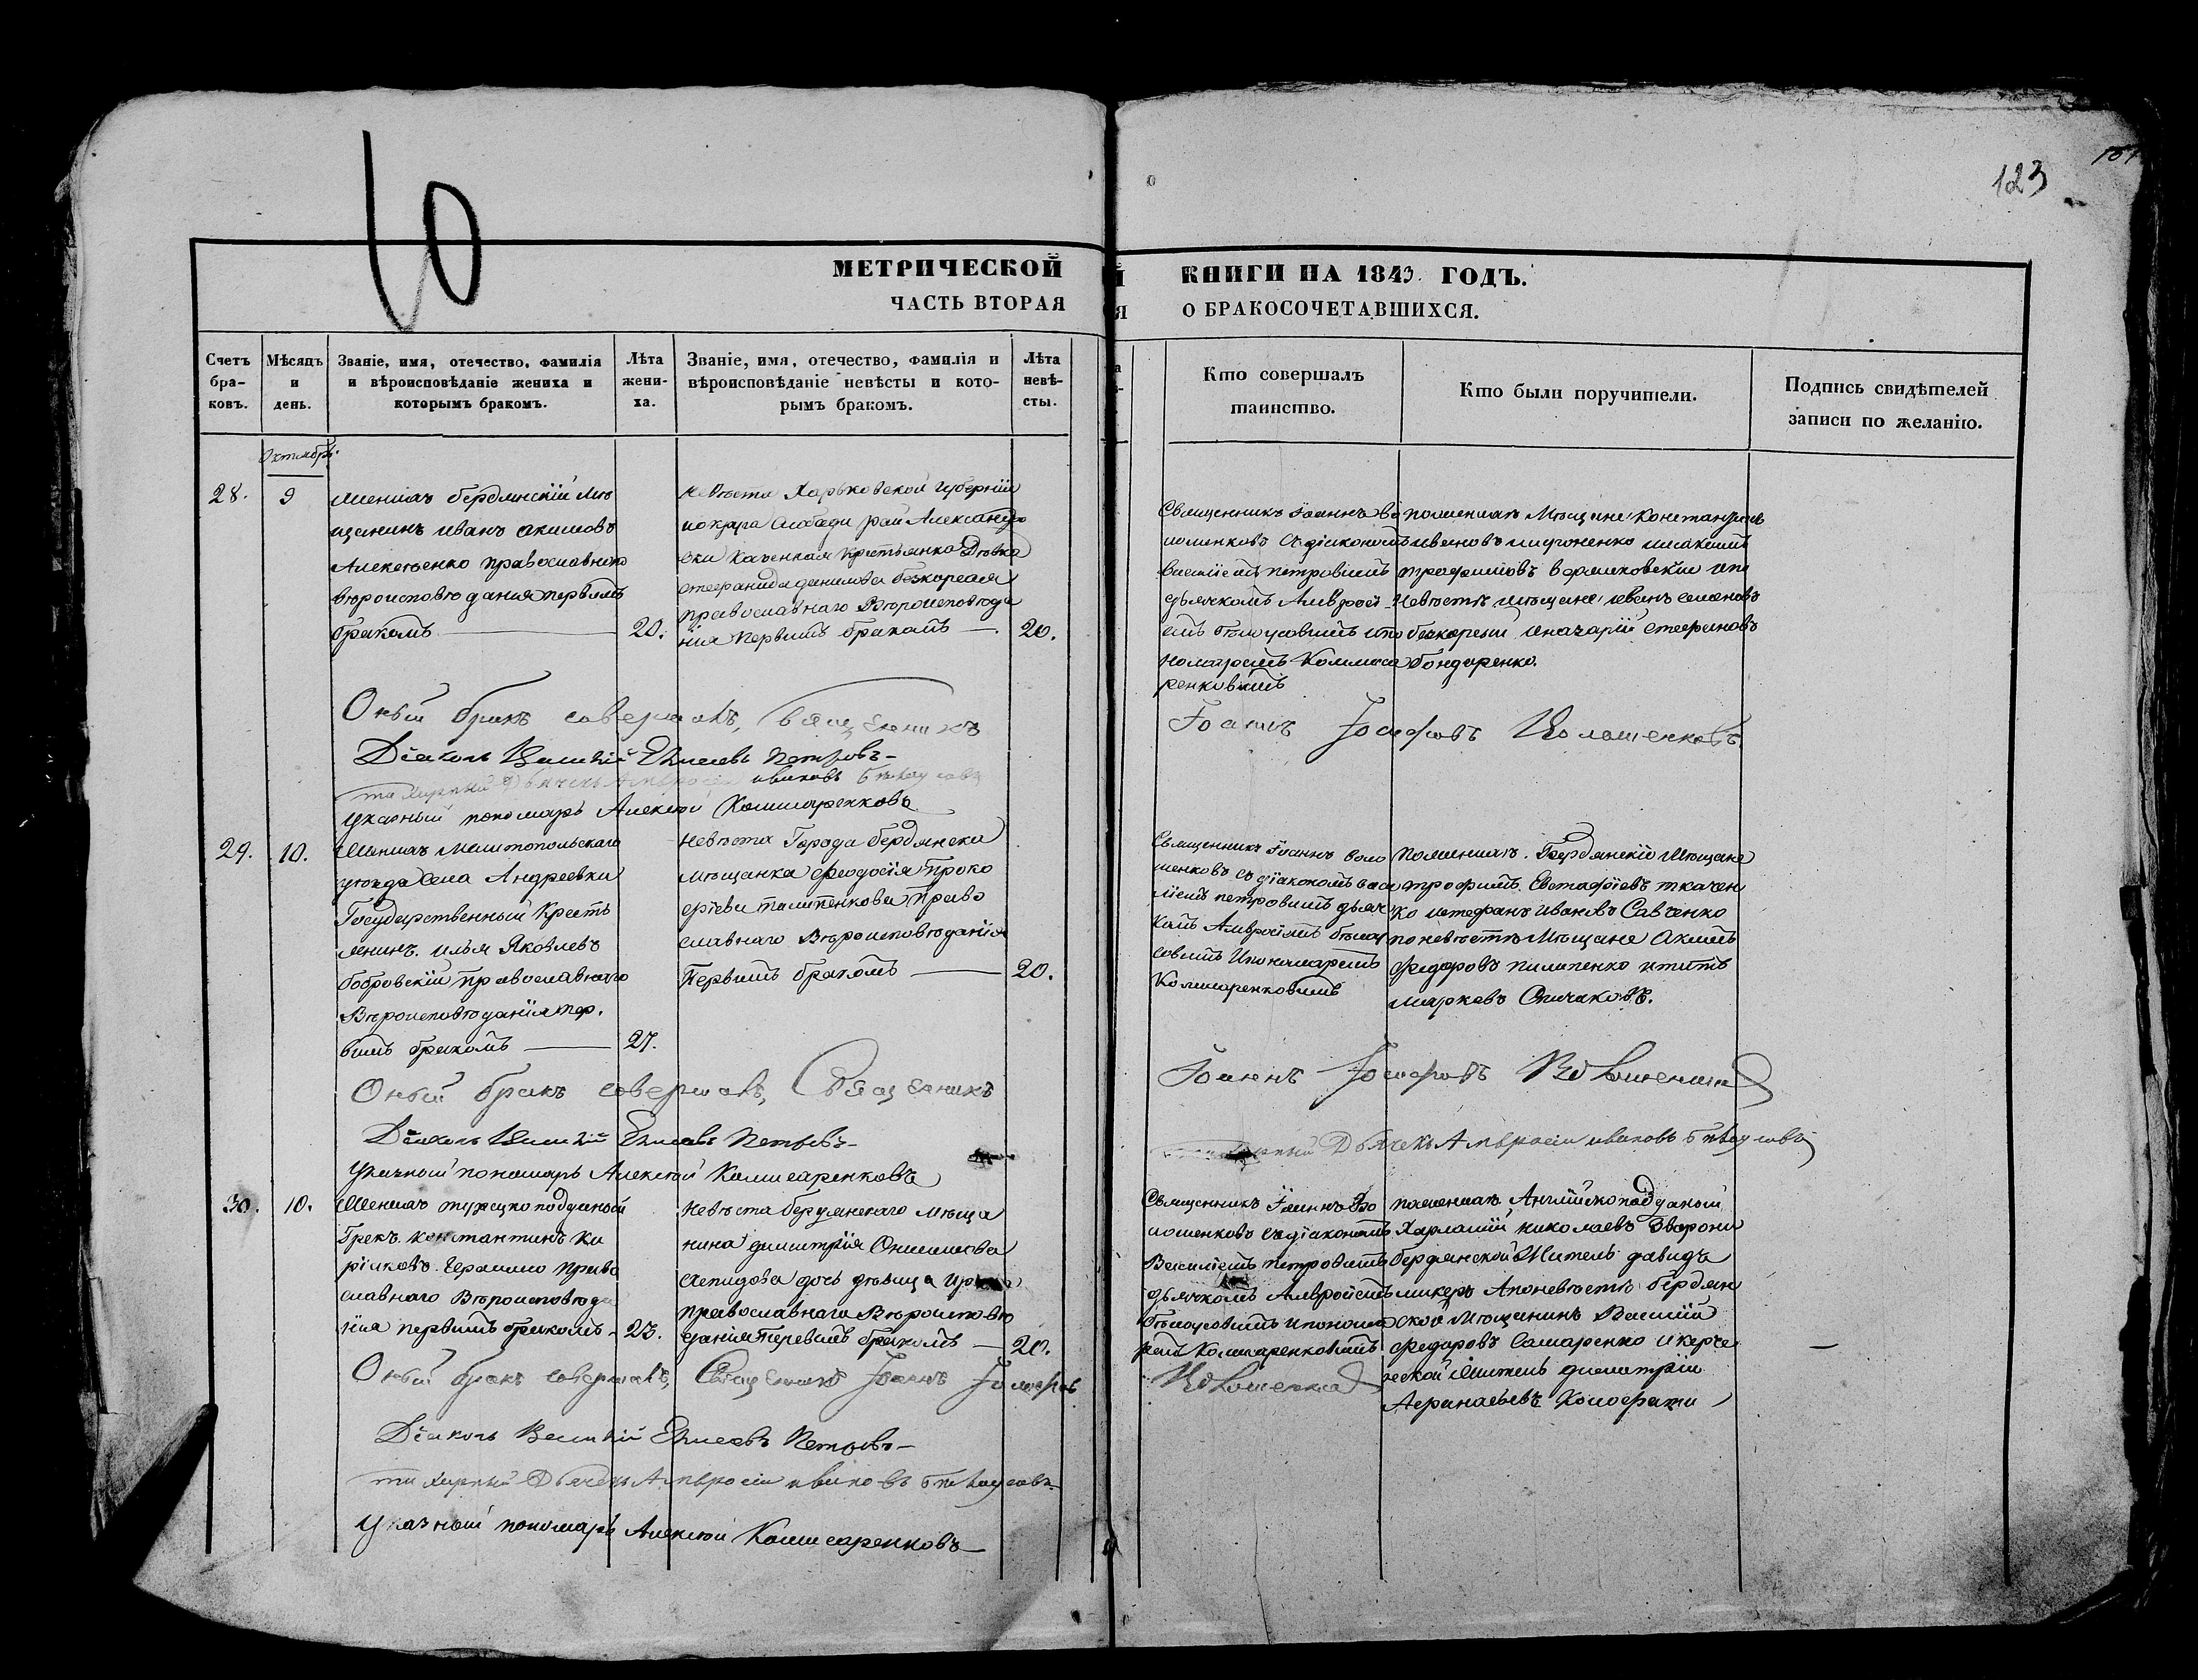 10
123
МЕТРИЧЕСКОЙ КНИГИ НА 1843 ГОДЪ.
ЧАСТЬ ВТОРАЯ О БРАКОСОЧЕТАВШИХСЯ.
Счетъ бра-ковъ.
Мѣсяцъ и день.
Званіе, имя, отечество, фамилія и вѣроисповѣданіе жениха и которымъ бракомъ.
Лѣта жени-ха.
Званіе, имя, отечество, фамилія и вѣроисповѣданіе невѣсты и кото-рымъ бракомъ.
Лѣта невѣ-сты.
Кто совершалъ таинство.
Кто были поручители.
Подпись свидѣтелей записи по желанію.
Октябрь.
28.
9
Женихъ бердянскій мѣ
щанинъ иванъ акимовъ
Алексеенко православнаго
вѣроисповѣданія первымъ
бракомъ
20.
невѣста Харьковской губерніи
Александро
крестьянка Дѣвка
стефанида данилова
православнаго Вѣроисповѣда
нія первымъ бракомъ
20.
Священникъ Іоаннъ Во
лошенковъ съ діакономъ
василіемъ петровымъ
дьячкомъ Амвросі
емъ бѣлоусовымъ и по
номаремъ Коммиса
ренковымъ
по женихѣ Мѣщане Константинъ
ивановъ мироненко
трофимовъ
невѣстѣ мѣщане иванъ семеновъ
стефановъ
бондаренко.
Оный бракъ совершалъ, Священникъ Іоаннъ Іосифовъ Волошенковъ
Діаконъ Василій Елисеевъ Петровъ
Дьячекъ Амвросій ивановъ бѣлоусовъ
Указный пономарь Алексѣй Коммисаренковъ
29.
10.
Женихъ Мелитопольскаго
уѣзда села Андреевки
Государственный Кресть
янинъ илья Яковлевъ
бобровскій православнаго
Вѣроисповѣданія пер.
вымъ бракомъ
27.
невѣста Города бердянска
мѣщанка феодосія Проко
фіева пилипенкова Право
славнаго Вѣроисповѣданія
Первымъ бракомъ
20.
Священникъ Іоаннъ воло
шенковъ съ діакономъ васи
ліемъ петровымъ дьяч
комъ Амвросіемъ бѣлоу
совымъ и пономаремъ
Коммисаренковымъ
По женихѣ. Бердянскіе Мѣщане
трофимъ Евстафіевъ ткачен
ко и стефанъ ивановъ Савченко
по невѣстѣ Мѣщане Акимъ
федоровъ пилипенко и титъ
марковъ Спичаковъ.
Оный бракъ совершалъ, Священникъ Іоаннъ Іосифовъ Волошенковъ
Діаконъ Василій Елисеевъ Петровъ
Дьячекъ Амвросій ивановъ бѣлоусовъ
Указный пономарь Алексѣй Коммисаренковъ
30.
10.
Женихъ турецкоподданный
Грекъ константинъ Ки
ріяковъ Право
славнаго Вѣроисповѣда
нія первымъ бракомъ
23.
Невѣста бердянскаго мѣща
нина димитрія Онисимова
дочь дѣвица
православнаго Вѣроисповѣ
данія Первымъ бракомъ
20.
Священникъ Іоаннъ Во
лошенковъ съ діакономъ
Василіемъ петровымъ
дьячкомъ Амвросіемъ
бѣлоусовымъ и понома
ремъ Коммисаренковымъ
по женихѣ Англійскоподданый
Харлампій николаевъ
бердянской Житель давидъ
А по невѣстѣ бердян
ской Мѣщанинъ Василій
федоровъ Самаренко и керче
нской житель димитрій
Афанасьевъ
Оный бракъ совершалъ, Священникъ Іоаннъ Іосифовъ Волошенковъ
Діаконъ Василій Елисеевъ Петровъ
Дьячекъ Амвросій ивановъ бѣлоусовъ
Указный пономарь Алексѣй Коммисаренковъ